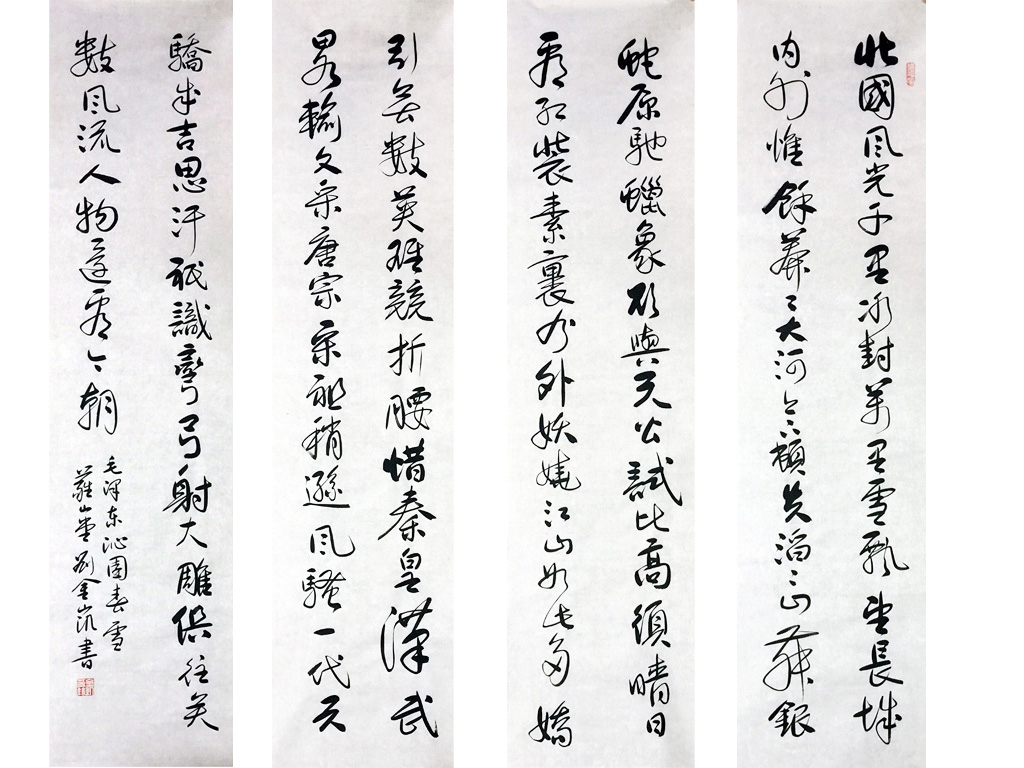 北國風光千里冰封萬里雪飄望長城
内外惟餘莽々大河上下頓失滔々山舞銀
蛇原馳蠟象欲與天公試比高須晴日
看紅裝素裹分外妖嬈江山如此多嬌
引無數英雄競折腰惜秦皇漢武
畧輸文采唐宗宋祖稍遜風騷一代天
驕成吉思汗祇識彎弓射大雕俱往矣
數風流人物還看今朝
毛澤东沁園春雪
山堂劉金書